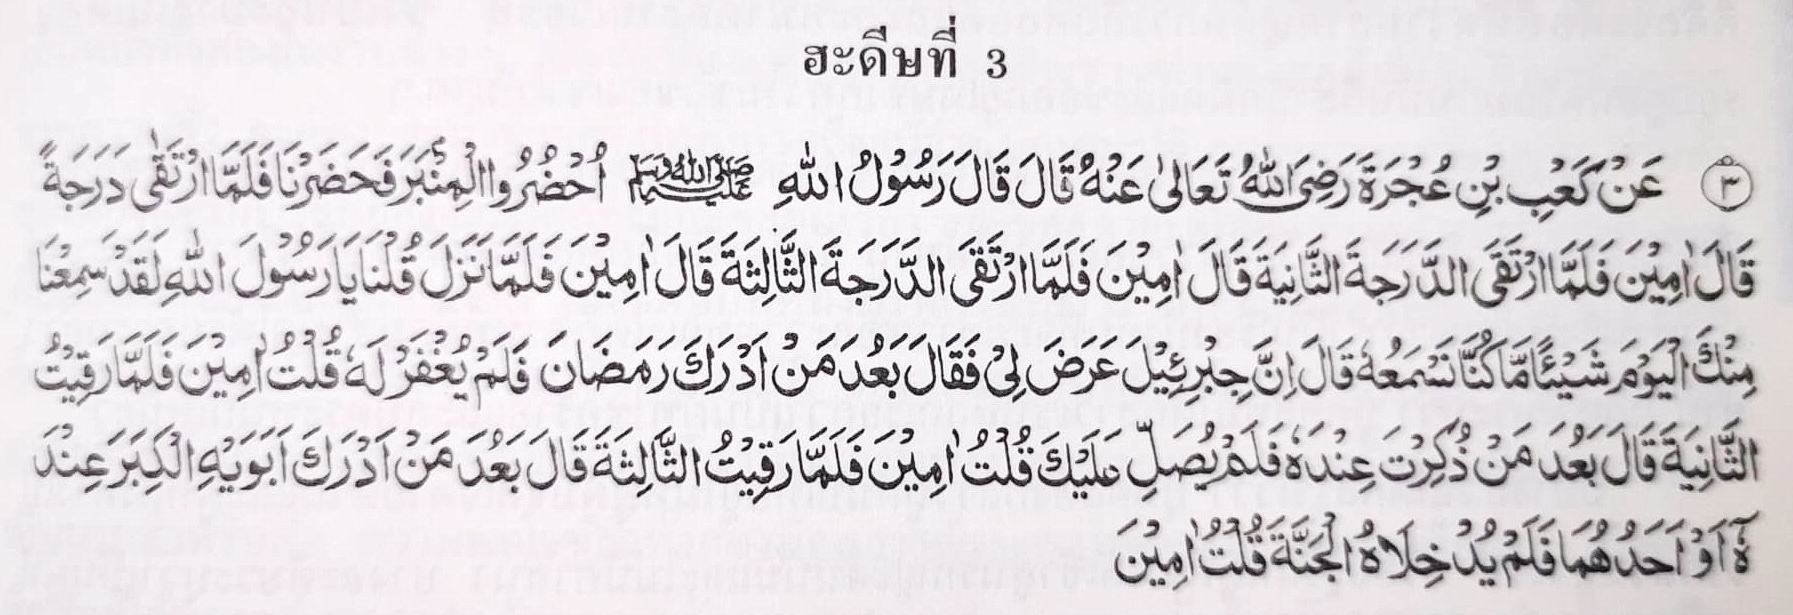 ฮะดีษที่ 3
٣ عَنْ كَعْبِ بْنِ عُجْرَةَ رَضِىَ اللهُ تَعَالىٰ عَنْهُ قَالَ قَالَ رَسُوْلُ اللهِ ﷺ اُحْضُرُوا الْمِنْبَرَ فَحَضَرْنَا فَلَمَّا ارْتَقٰى دَرَجَةً
قَالَ اٰمِيْنَ فَلَمَّا ارْتَقَى الدَّرَجَةَ الثَّانِيَةَ قَالَ اٰمِيْنَ فَلَمَّا ارْتَقَى الدَّرَجَةَ الثَّالِثَةَ قَالَ اٰمِيْنَ فَلَمَّا نَزَلَ قُلْنَا يَا رَسُوْلَ اللهِ لَقَدْ سَمِعْنَا
مِنْكَ الْيَوْمَ شَيْئًا مَّا كُنَّا نَسْمَعُهٗ قَالَ اِنَّ جِبْرِئِيْلَ عَرَضَ لِىْ فَقَالَ بَعُدَ مَنْ اَدْرَكَ رَمَضَانَ فَلَمْ يُغْفَرْ لَهٗ قُلْتُ اٰمِيْنَ فَلَمَّا رَقِيْتُ
الثَّانِيَةَ قَالَ بَعُدَ مَنْ ذُكِرْتَ عِنْدَهٗ فَلَمْ يُصَلِّ عَلَيْكَ قُلْتُ اٰمِيْنَ فَلَمَّا رَقِيْتُ الثَّالِثَةَ قَالَ بَعُدَ مَنْ اَدْرَكَ اَبَوَيْهِ الْكِبَرَ عِنْدَ
هٗ اَوْ اَحَدُهُمَا فَلَمْ يُدْخِلَاهُ الْجَنَّةَ قُلْتُ اٰمِيْنَ